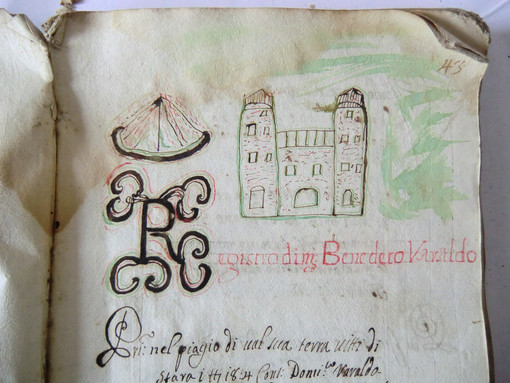 43
Registro di mg Benedeto Varaldo
Pri: nel piagio di ual sua terra uiti di
Stara i 18:4 Conf: Donu:co Varaldo